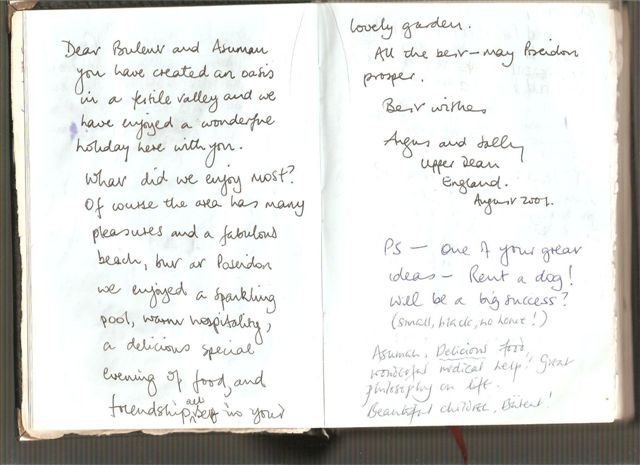 Dear Bulent and Asuman
you have created an oasis
in a fertile valley and we
have enjoyed a wonderful
holiday here with you.
What did we enjoy most?
Of course the area has many
pleasures and a fabulous
beach, but at Poseidon
we enjoyed a sparkling
pool, warm hospitality,
a delicious special
evening of food, and
friendship, all set in your
lovely garden.
All the best – may Poseidon
prosper.
Best wishes
Angus and Sally
Upper Dean
England.
August 2001.
PS – one of your great
ideas – Rent a dog!
will be a big success?
(small, black, no home!)
Asuman, Delicious food
wonderful medical help! Great
philosophy on life.
Beautiful children, Bulent!